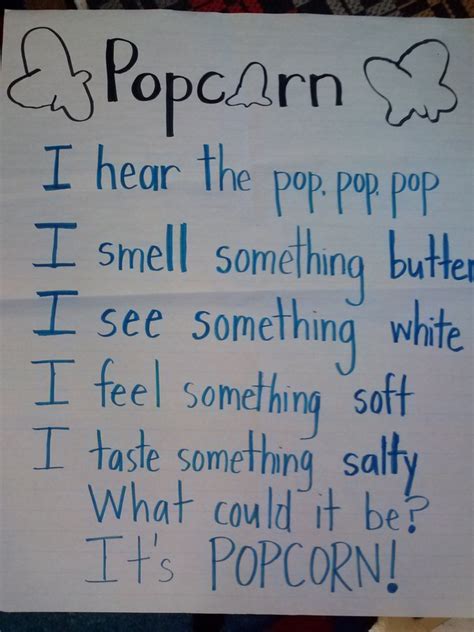 Popcorn
I hear the pop. pop. pop
I smell something butter
I see something white
I feel something soft
I taste something salty
What could it be?
It's POPCORN!